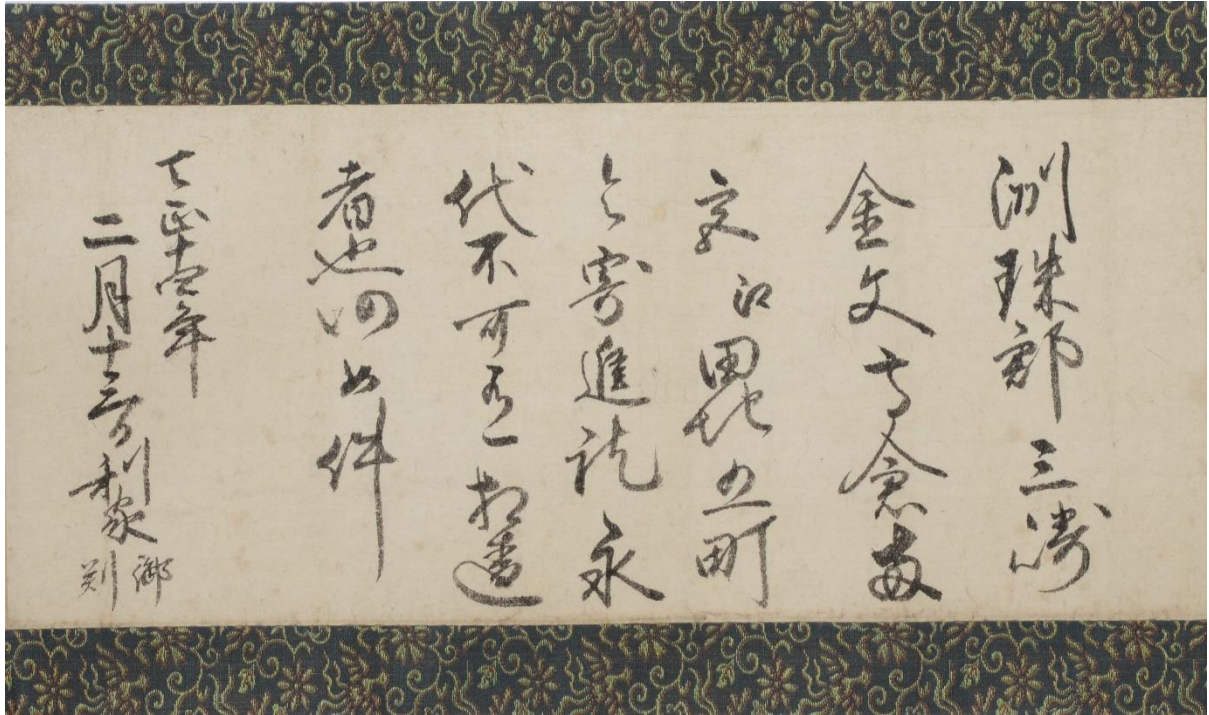 洲珠郡三崎
金分高倉両
宮江田地五町
令寄進訖永
代不可有相違
者也仍如件
天正十四年
二月十三日利家
御判